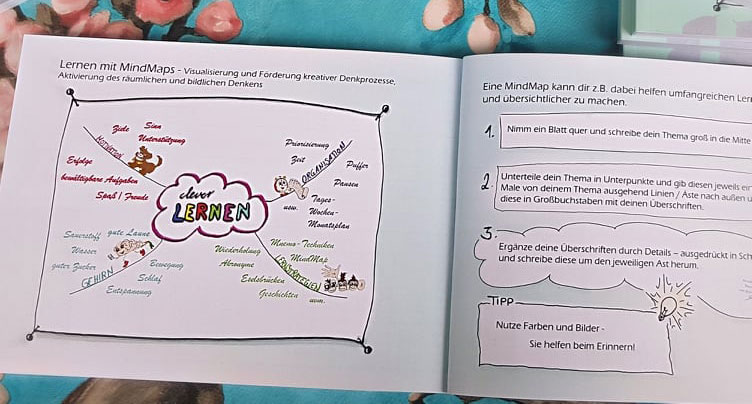 Lernen mit MindMaps - Visualisierung und Förderung kreativer Denkprozesse,
Aktivierung des räumlichen und bildlichen Denkens
Ziele
Sinn
Unterstützung
MOTIVATION
Erfolge
bewältigbare Aufgaben
Spaß / Freude
Priorisierung
Zeit
ORGANISATION
Puffer
Pausen
Tages-
Wochen-
Monatsplan
usw.
clever
LERNEN
Sauerstoff
gute Laune
Wasser
guter Zucker
GEHIRN
Bewegung
Schlaf
Entspannung
Wiederholung
Akronyme
Mnemo-Techniken
MindMap
LERNSTRATEGIEN
Eselsbrücken
Geschichten
usw.
Eine MindMap kann dir z.B. dabei helfen umfangreichen
und übersichtlicher zu machen.
1.
Nimm ein Blatt quer und schreibe dein Thema groß in die Mitte
2.
Unterteile dein Thema in Unterpunkte und gib diesen jeweils
Male von deinem Thema ausgehend Linien / Äste nach außen
diese in Großbuchstaben mit deinen Überschriften.
3.
Ergänze deine Überschriften durch Details - ausgedrückt in
und schreibe diese um den jeweiligen Ast herum.
TIPP
Nutze Farben und Bilder -
Sie helfen beim Erinnern!